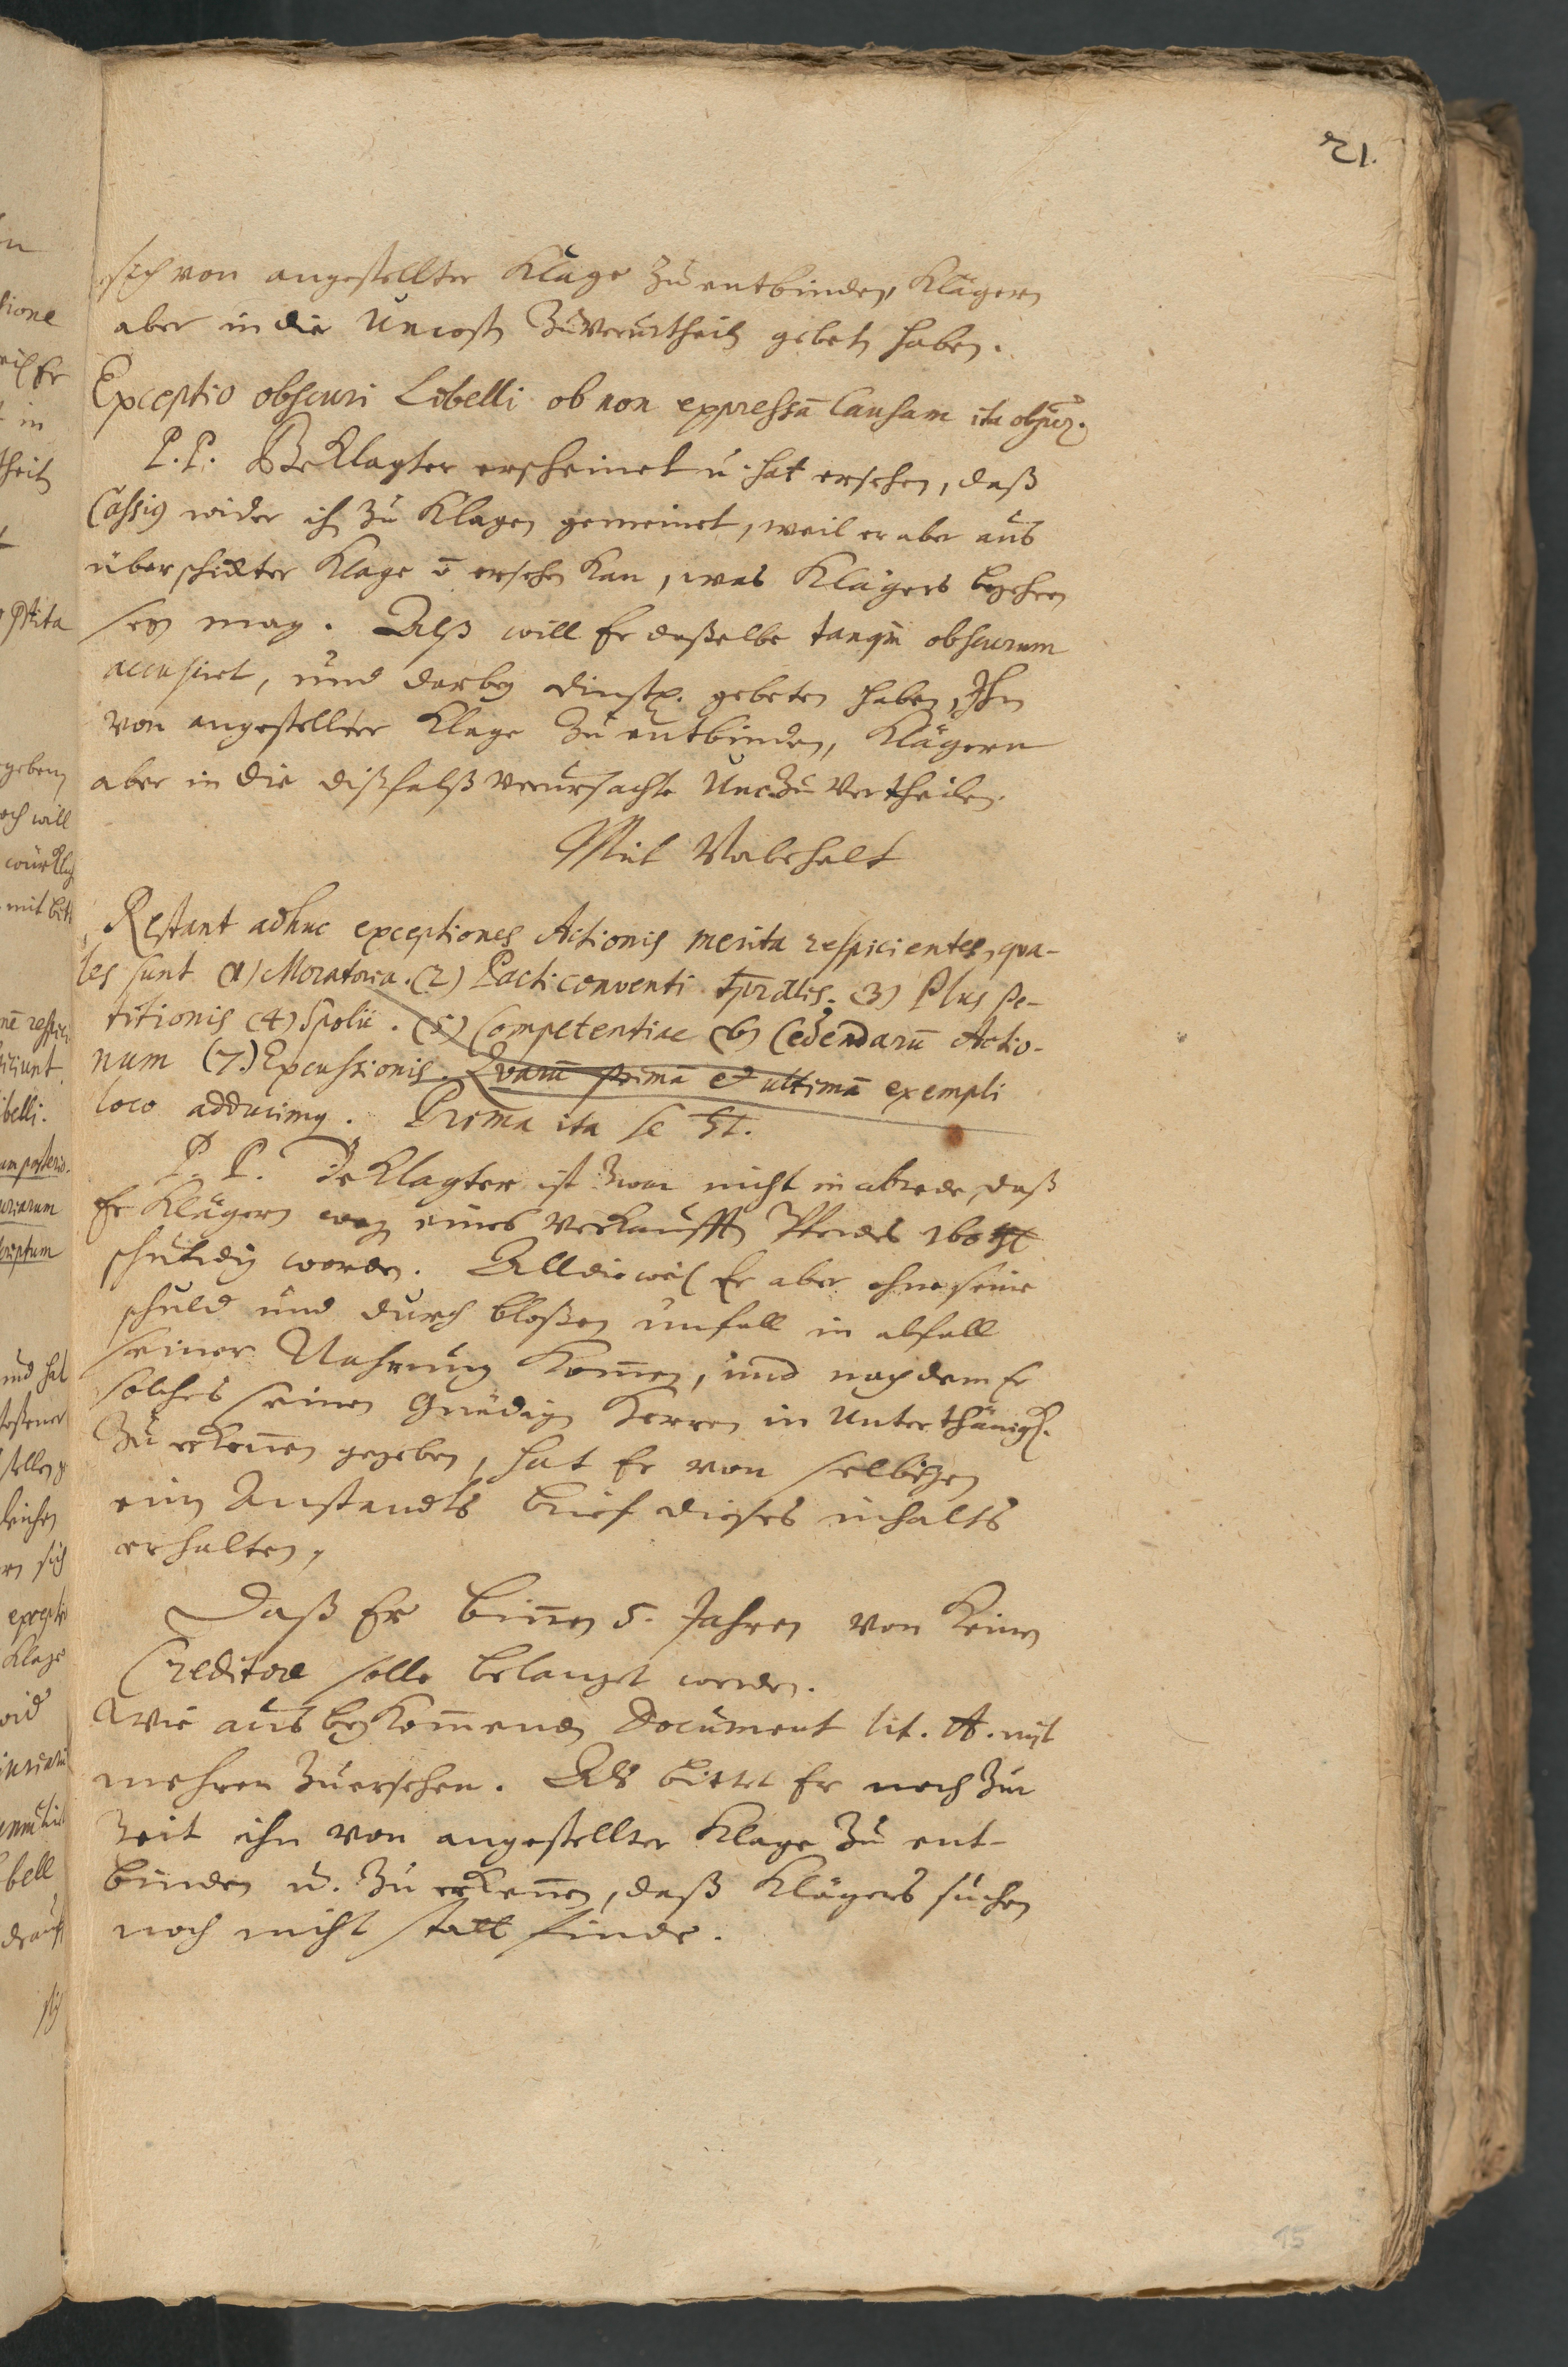 21.
sich von angestellter Klage zu entbinden, Klägern
aber in die Uncosten zu verurtheiln gebeten haben.
Exceptio obscuri Libelli ob non expressā Causam ita
P. P. Beklagter erscheinet u. hat ersehen, daß
Cassig wider ihn zu Klagen gemeinet, weil er aber aus
überschickter Klage ersehen kan, was Klägers begehren
sey mag. Alß will Er dasselbe tanqm obscurum
accusiret, und darbey dinstl. gebeten haben, Ihn
von angestellter Klage zu entbinden, Klägern
aber in die dißfalß verursachte Unc. zu vertheilen.
Mit Vorbehalt
Restant adhuc exceptiones Actionis merita respicientes, qua-
les sunt (1) Moratoria. (2) Pacti conventi (3) Plus pe-
titionis (4) Spolii. (5) Competentiae (6) Cedendarū Actio-
num (7.) Excussionis. Qvarū primā et ultimā exempli
loco adducimg. Prima ita se
P. P. Beklagter ist zwar nicht in abrede, daß
Er Klägern weg eines verkaufften Pferdes
schuldig worden. Alldieweil Er aber ohne seine
schuld und durch bloßen unfall in abfall
seiner Nahrung kom̄en, und nachdem Er
solches seinen Gnädigen Herren in Unterthänigk.
zu erken̄en gegeben, hat Er von selbigen
ein Anstandts brief dieses inhalts
erhalten,
Daß Er bin̄en 5. Jahren von keinen
Creditore solle belanget werden.
Wie aus beykom̄enden Document lit. A. mit
mehren zuersehen. Als bittet Er noch zur
Zeit ihn von angestellter Klage zu ent-
binden u. zu erken̄en, daß Klägers suchen
noch nicht statt finde.
15